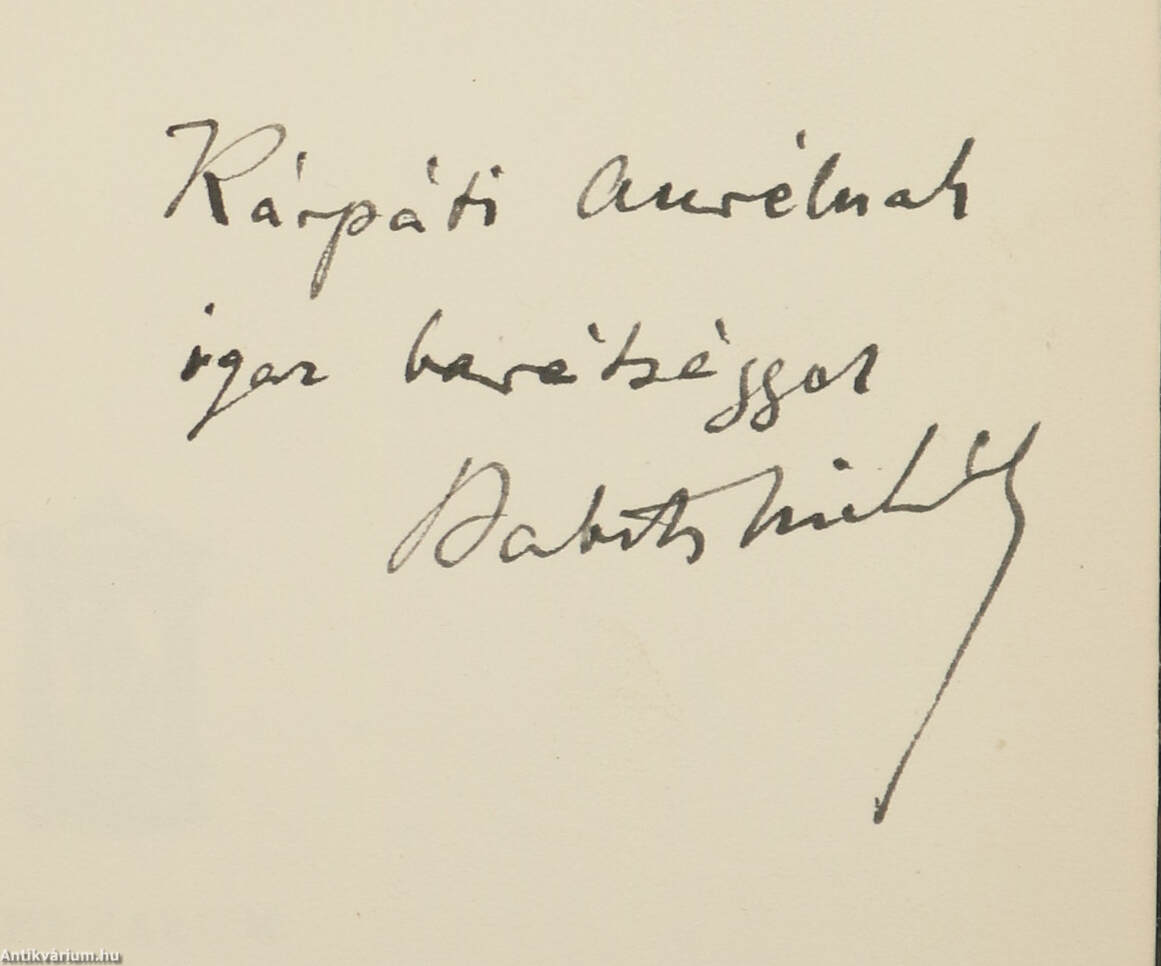 Kárpáti Aurélnak
igaz barátsággal
Babits Mihály
Antikvárium.hu